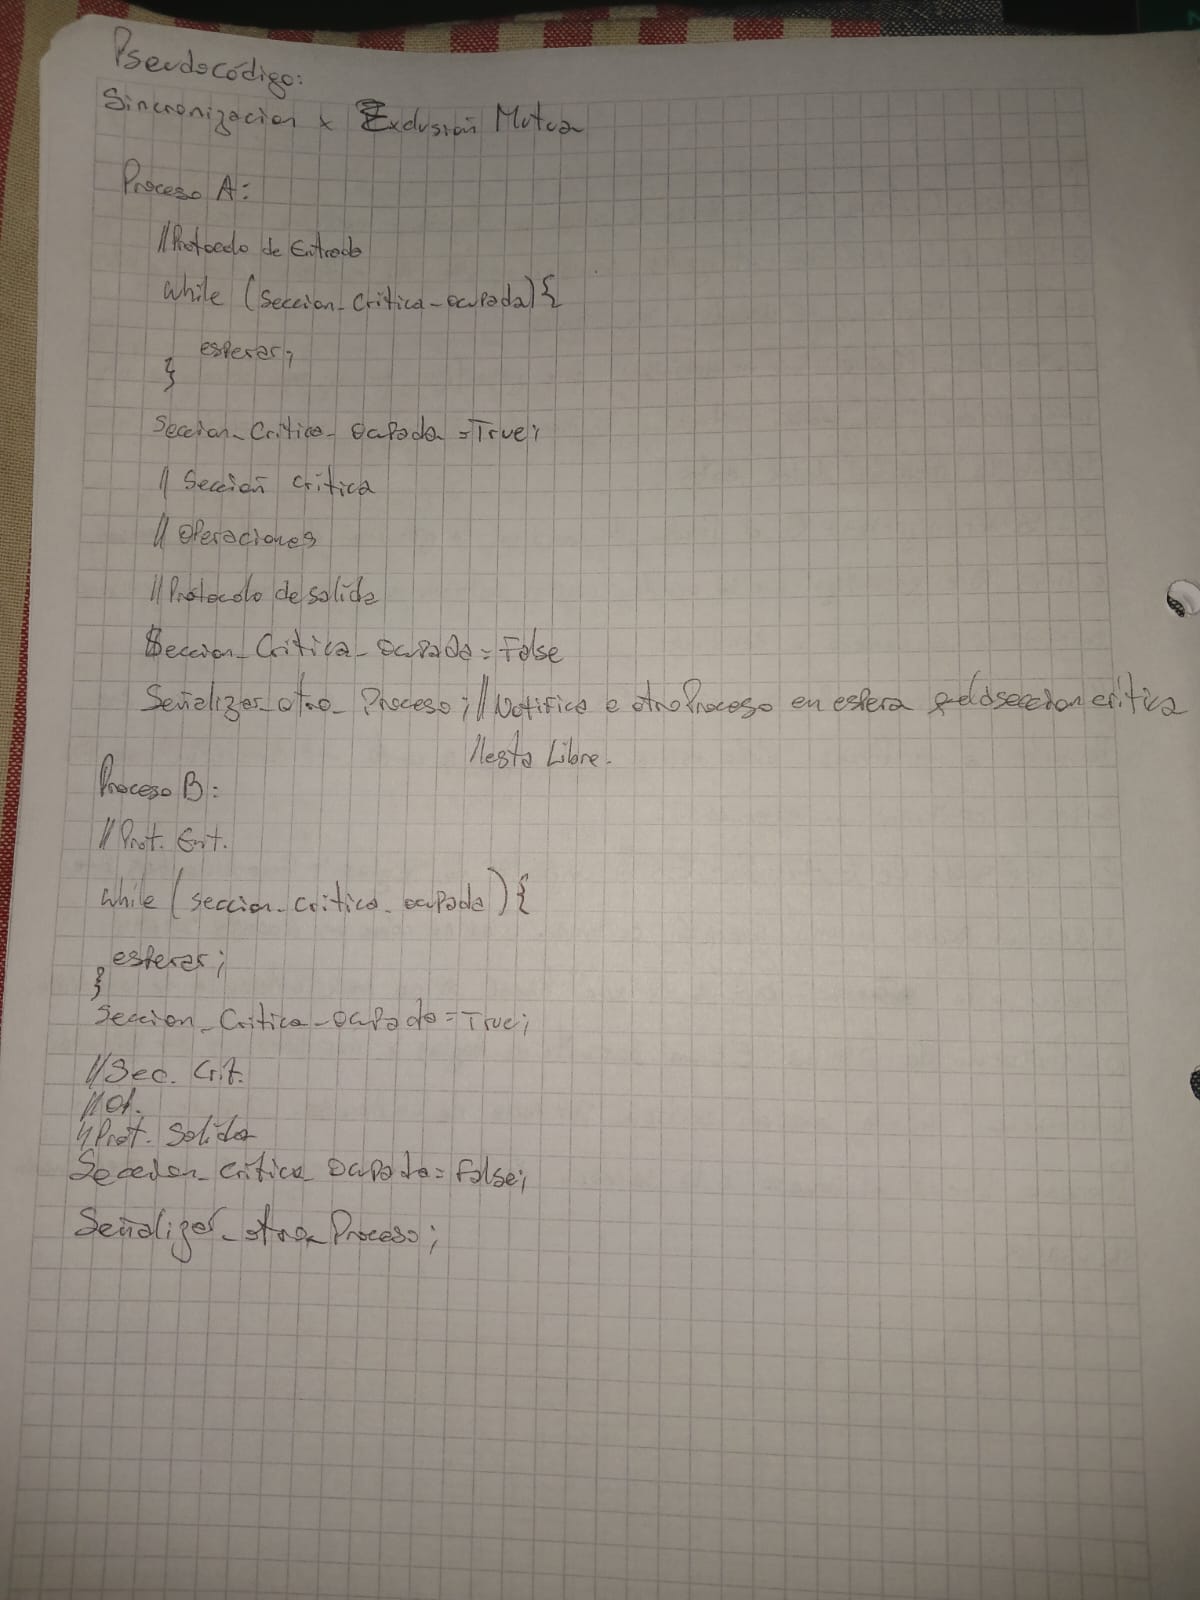 Pseudocódigo:
Sincronizacion x Exclusión Mutua
Proceso A:
//Protocolo de Entrada
while (seccion_critica_ocupada){
esperar;
}
Seccion_Critica_ocupada = True;
// Sección critica
// Operaciones
//Protocolo de salida
Seccion_Critica_ocupada = False
Señalizar_otro_Proceso; // Notifica a otro Proceso en espera q la seccion critica
//esta Libre.
Proceso B:
//Prot. Ent.
while (seccion_critica_ocupada){
esperar;
}
Seccion_Critica_ocupada = True;
//Sec. Crit.
//Op.
//Prot. Salida
Seccion_critica_ocupada = False;
Señalizar_otro_Proceso;